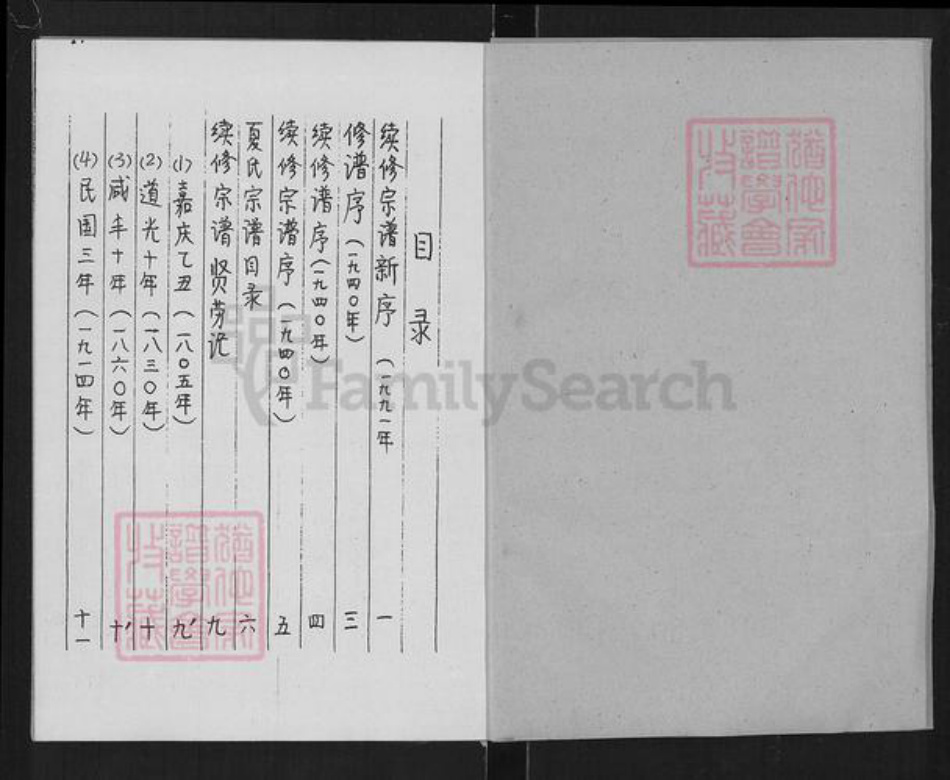 目录
续修宗谱新序（一九九一年 一
修谱序（一九四〇年） 三
续修谱序（一九四〇年） 四
续修宗谱序（一九四〇年） 五
夏氏宗谱目录 六
续修宗谱贤劳记 九
(1)嘉庆乙丑（一八〇五年） 九'
(2)道光十年（一八三〇年） 十
(3)咸丰十年（一八六〇年） 十'
(4)民国三年（一九一四年） 十一
FamilySearch